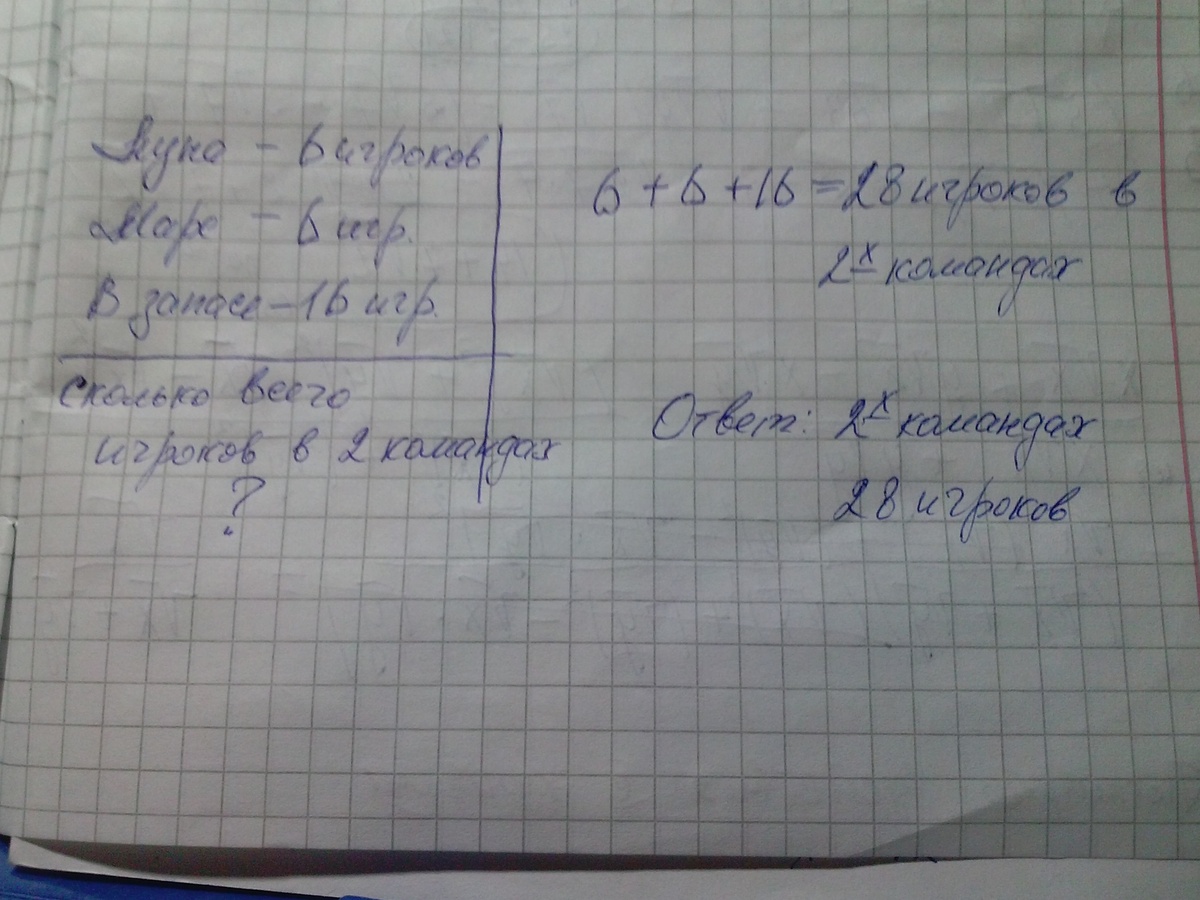 Луна - 6 игроков
Марс - 6 игр.
В запасе - 16 игр.
сколько всего
игроков в 2 командах
?
6 + 6 + 16 = 28 игроков в
2х командах
Ответ: 2х командах
28 игроков